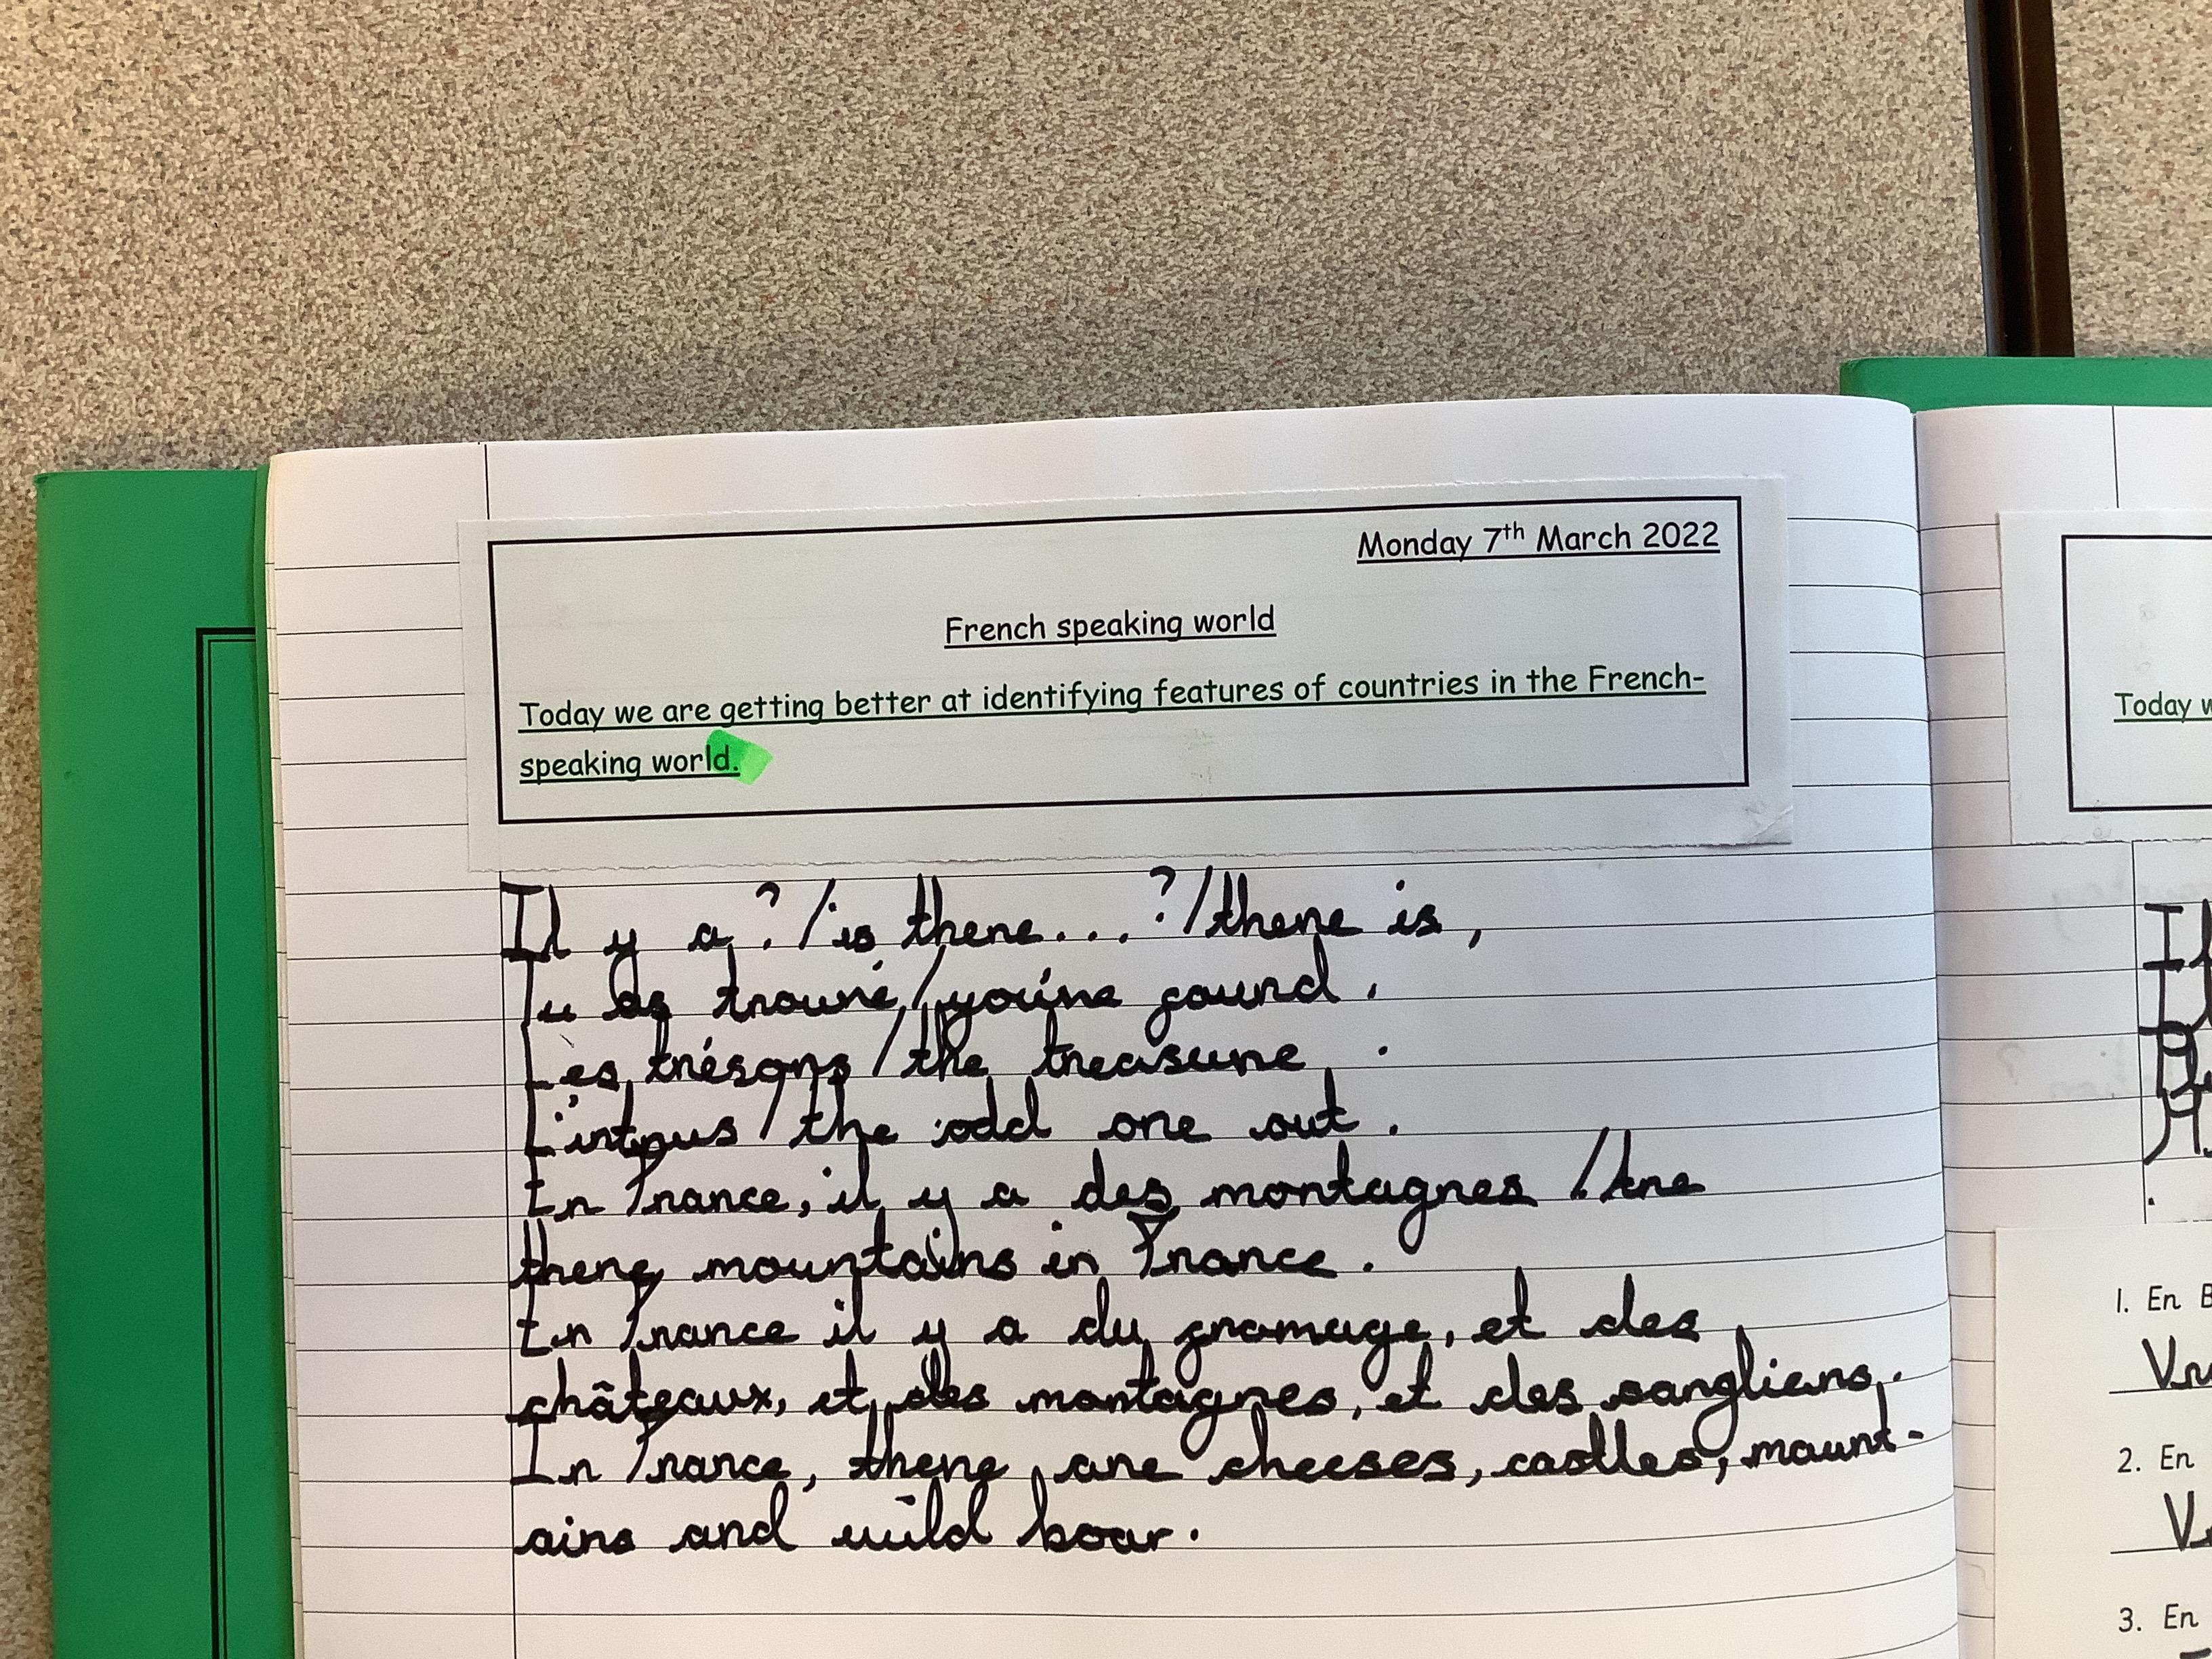 Monday 7th March 2022
French speaking world
Today we are getting better at identifying features of countries in the French-
speaking world.
Il y a? /is there...?/there is,
Tu as trouvé/you've found.
Les trésors/the treasure.
L'intrus/the odd one out.
En France, il y a des montagnes /Are
there mountains in France.
En France il y a du fromage, et des
châteaux, et des montagnes, et des sangliers.
In France, there are cheeses, castles, mount-
ains and wild boar.
Today w
1. En B
2. En
3. En